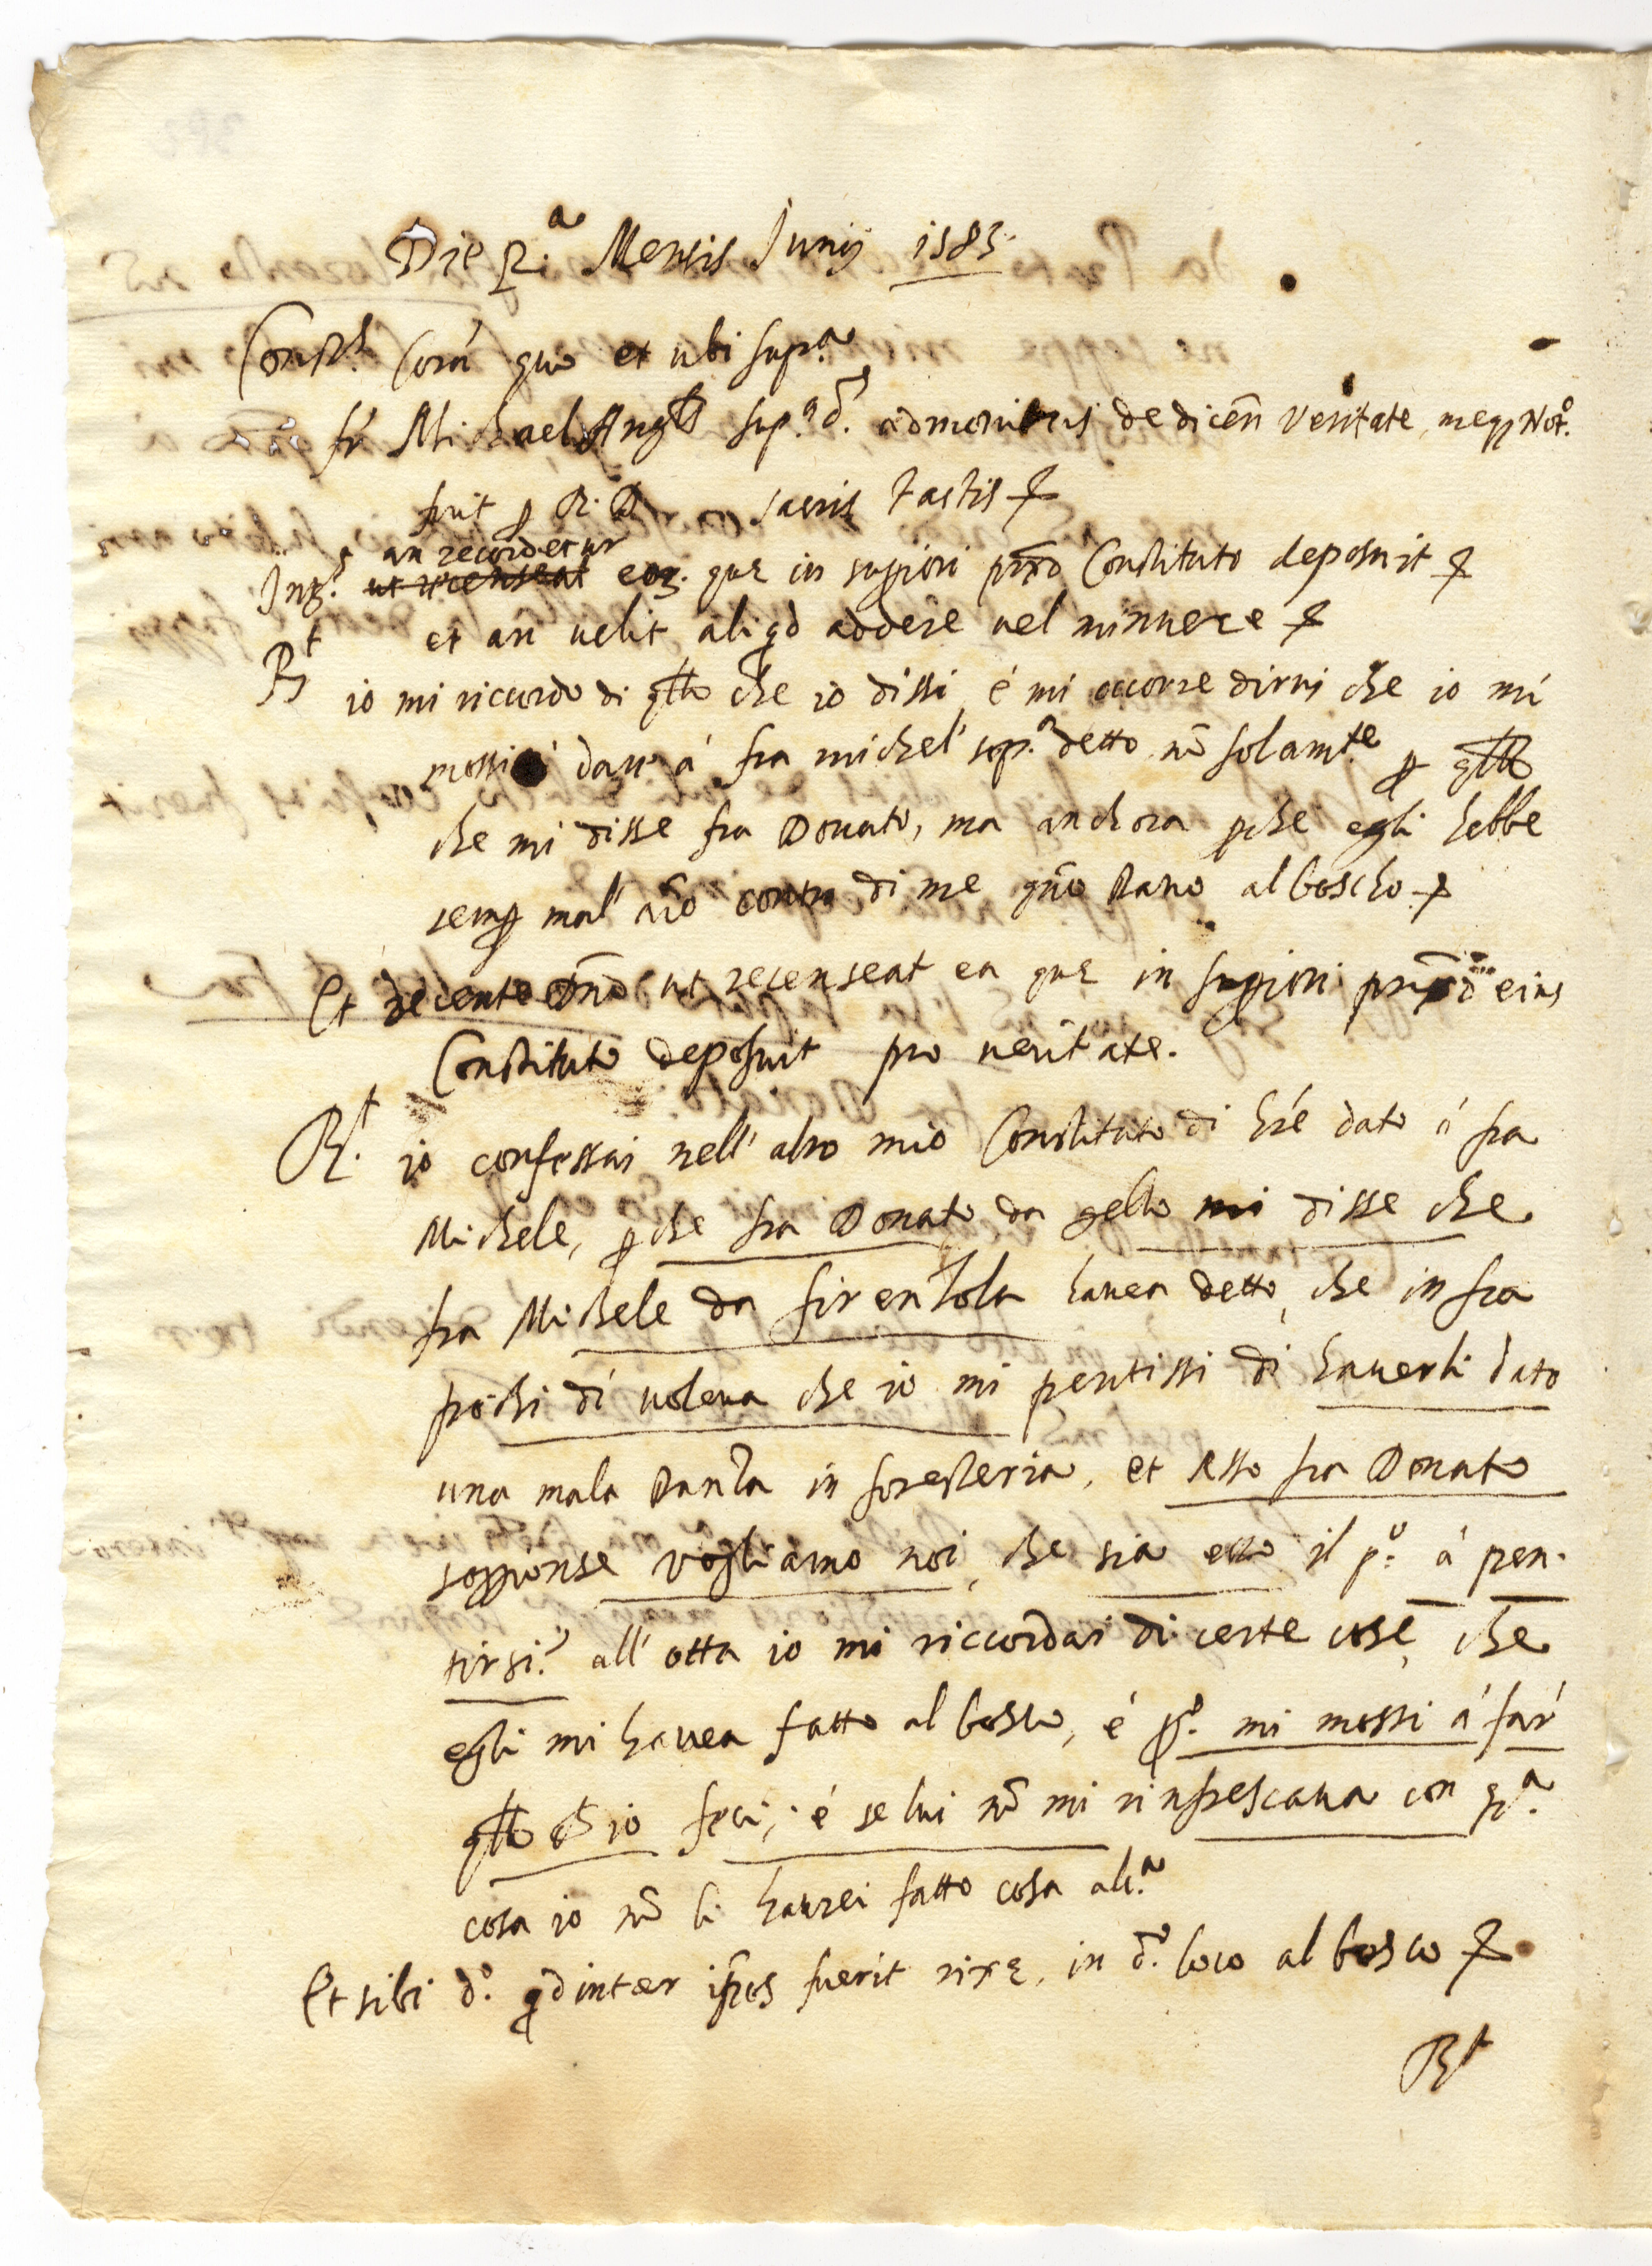 Die p.a Mensis Junij 1583.
Const. Corā quo et ubi sup.a
fr̄ Michael Ang.s sup.s d. admonitus de dicen̄ veritate, meq3 Not.o
fuit p R. D. sacris tactis &
an recordetur
Int.s ut recenseat eor. quę in superiori pn̄to Constituto deposuit &
et an velit aliqd addere vel minuere &
R.t io mi ricordo di qllo che io dissi, é mi occorre dirui che io mi
mossi á dar' á fra michel' sop.a detto nō solam.te p qllo
che mi disse fra Donato, ma anchora pche egli hebbe
semp mal' aīo contra di me qn̄o stavo al boscho &
Et dicente Dn̄o ut recenseat ea quę in superiori eius
Constituto deposuit pro veritate.
R.t io confessai nell' altro mio Constituto di hr̄é dato á fra
Michele, pche fra Donato da gello mi disse che
fra Michele da firenzola havea detto, che in fra
pochi dí voleva che io mi pentissi di haverli dato
una mala stanza in foresteria, et esso fra Donato
soggionse vogliamo noi, che sia esso il p.o á pen-
tirsi? all' otta io mi riccordai di certe cose, che
egli mi havea fatto al bosco, é p.o mi mossi á far'
qllo ch' io feci; é se lui nō mi rinfrescava con q.a
cosa io nō li haurei fatto cosa alc.a
Et sibi d.o qd inter ip̄os fuerit rixę, in d.o loco al bosco &
R.t